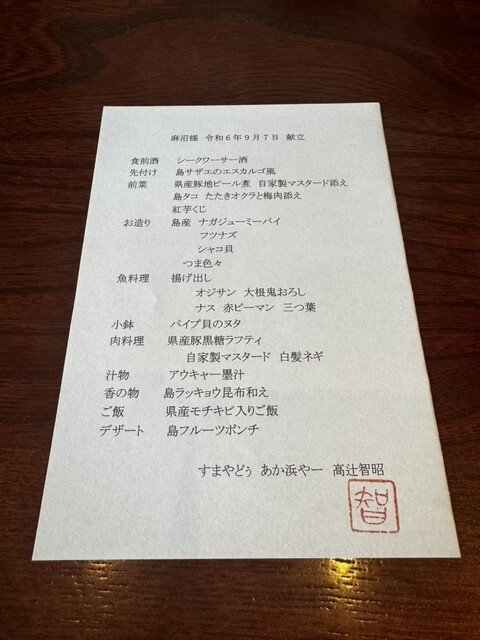 麻沼様 令和6年9月7日 献立
食前酒 シークワーサー酒
先付け 島サザエのエスカルゴ風
前菜 県産豚地ビール煮 自家製マスタード添え
島タコ たたきオクラと梅肉添え
紅芋くじ
お造り 島産 ナガジューミーバイ
フツナズ
シャコ貝
つま色々
魚料理 揚げ出し
オジサン 大根鬼おろし
ナス 赤ピーマン 三つ葉
小鉢 パイプ貝のヌタ
肉料理 県産豚黒糖ラフティ
自家製マスタード 白髪ネギ
汁物 アウキャー墨汁
香の物 島ラッキョウ昆布和え
ご飯 県産モチキビ入りご飯
デザート 島フルーツポンチ
すまやどぅ あか浜やー 高辻智昭
智